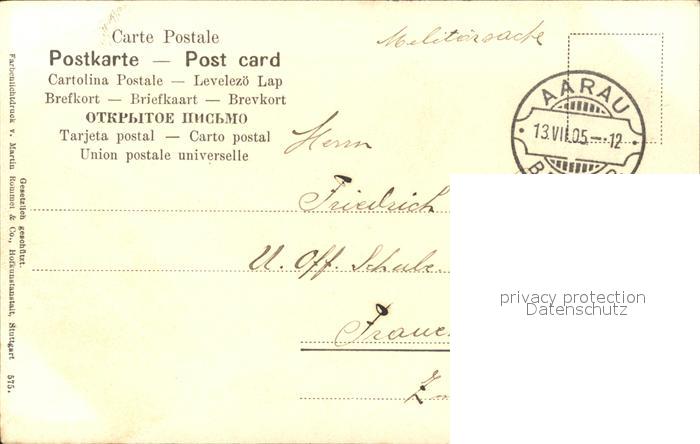 Carte Postale
Postkarte — Post card
Cartolina Postale — Levelezö Lap
Brefkort — Briefkaart — Brevkort
ОТКРЫТОЕ ПИСЬМО
Tarjeta postal — Carto postal
Union postale universelle
Militärsache
AARAU
13.VII.05.—.12
Herrn
Friedrich
U. Off. Schule.
Frauen
privacy protection
Datenschutz
Gesetzlich geschützt.
Farbenlichtdruck v. Martin Rommel & Co., Hofkunstanstalt, Stuttgart 575.